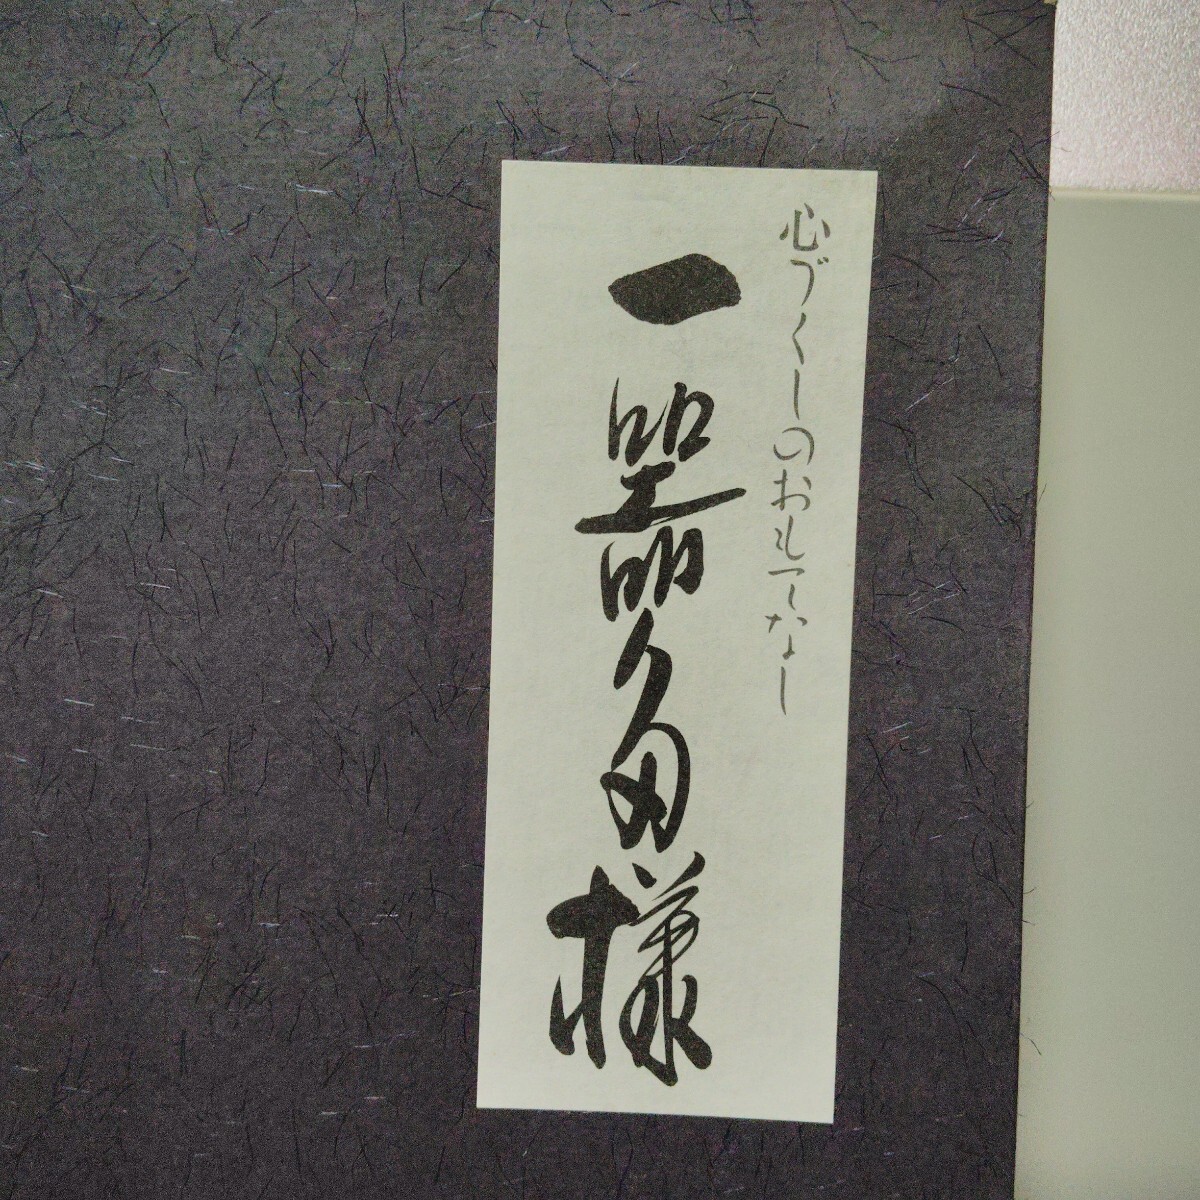 心づくしのおもてなし
一器多様